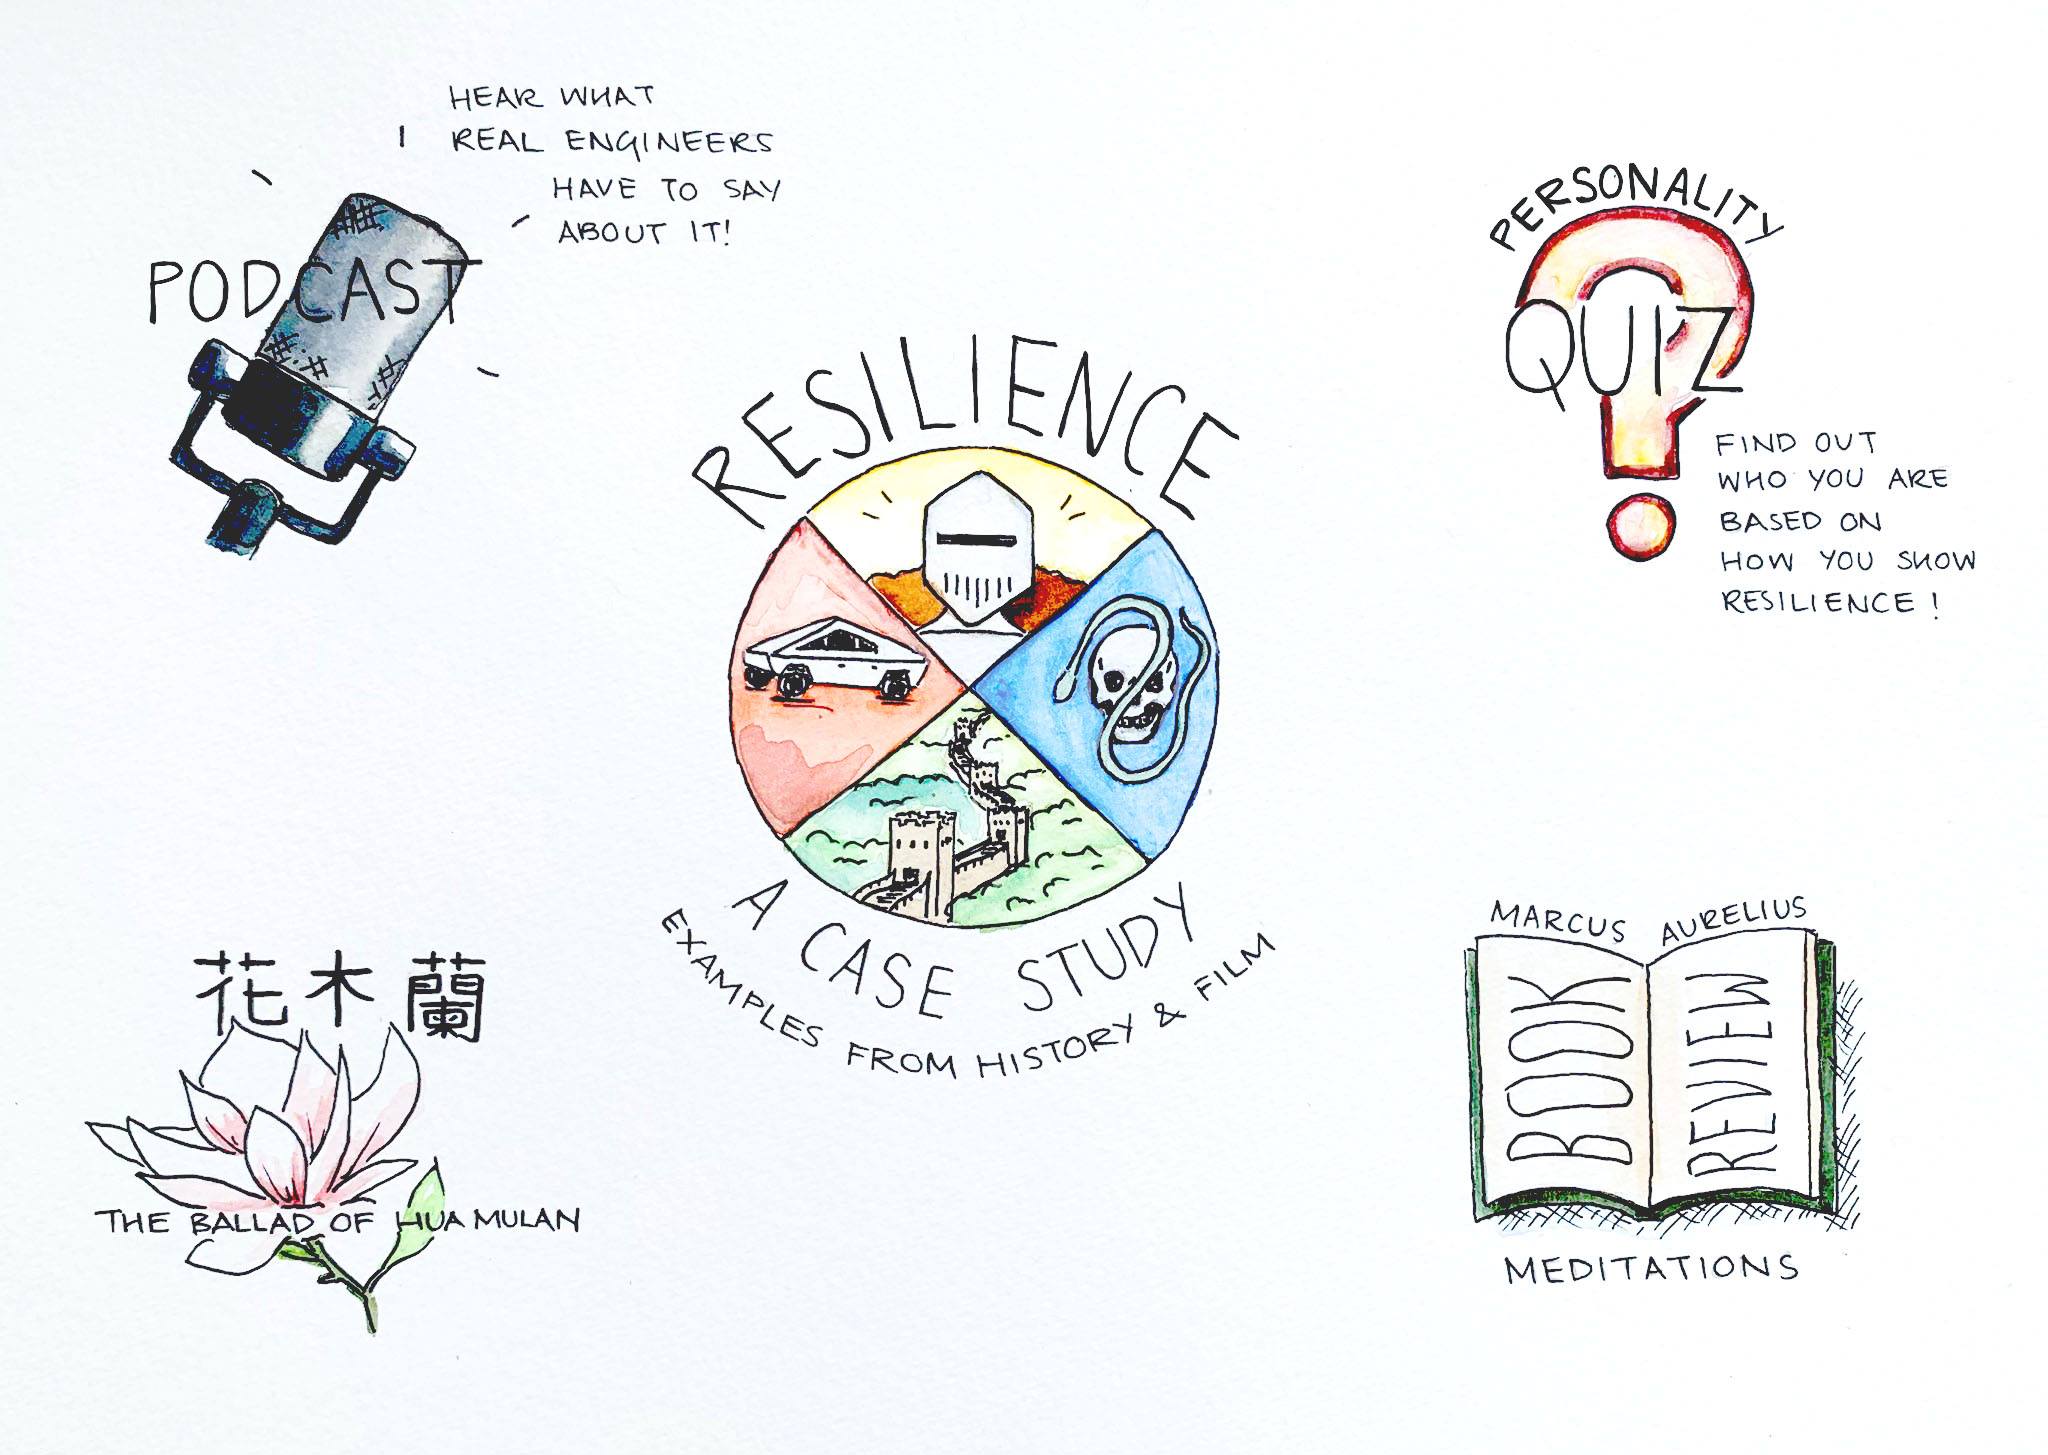 HEAR WHAT
REAL ENGINEERS
HAVE TO SAY
ABOUT IT!
PODCAST
PERSONALITY
QUIZ
FIND OUT
WHO YOU ARE
BASED ON
HOW YOU SHOW
RESILIENCE!
RESILIENCE
A CASE STUDY
EXAMPLES FROM HISTORY & FILM
花木蘭
THE BALLAD OF HUA MULAN
MARCUS AURELIUS
BOOK
REVIEW
MEDITATIONS